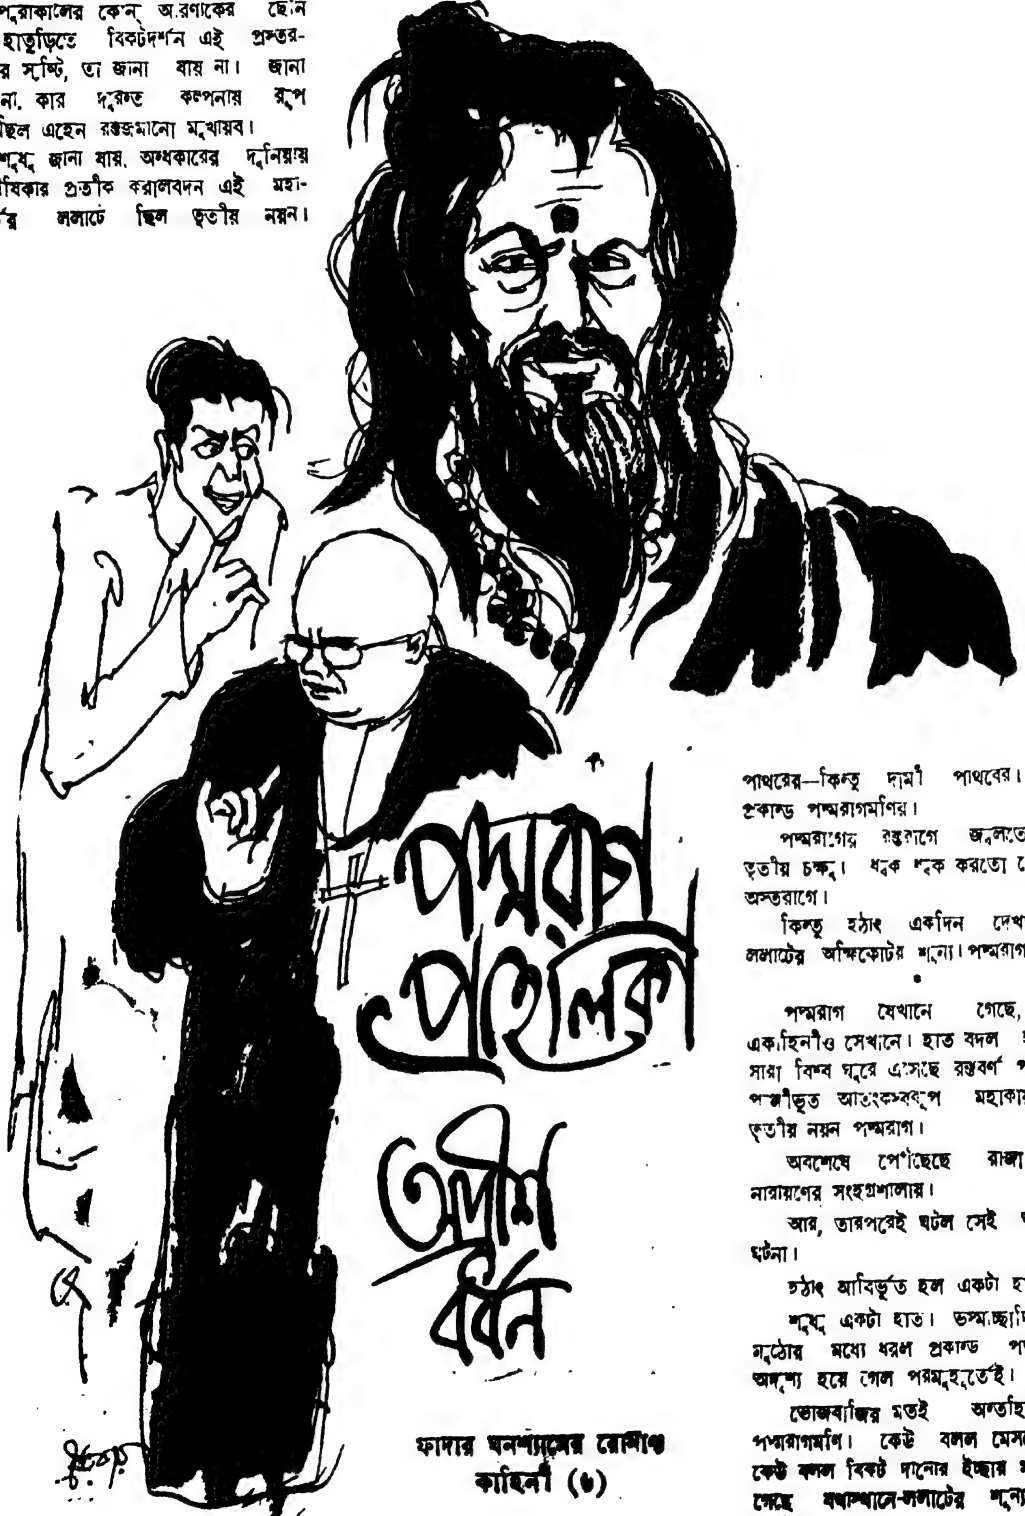 পুরাকালের কোন্ আরণ্যকের ছেনি
হাতুড়িতে বিকটদর্শন এই প্রস্তর-
র সৃষ্টি, তা জানা যায় না। জানা
না, কার দুরন্ত কল্পনায় রূপ
ছিল এহেন রক্তজমানো মুখাবয়ব।
শুধু জানা যায়, অন্ধকারের দুনিয়ায়
ষিকার প্রতীক করালবদন এই মহা-
ললাটে ছিল তৃতীয় নয়ন।
পাথরের—কিন্তু দামী পাথরের।
প্রকান্ড পদ্মরাগমণির।
পদ্মরাগের রক্তরাগে জ্বলতে
তৃতীয় চক্ষু। ধ্বক ধ্বক করতো
অস্তরাগে।
কিন্তু হঠাৎ একদিন দেখ
ললাটের অক্ষিকোটর শূন্য। পদ্মরাগ
*
পদ্মরাগ যেখানে গেছে,
এ কাহিনীও সেখানে। হাত বদল
সারা বিশ্ব ঘুরে এসেছে রক্তবর্ণ
পুঞ্জীভূত আতংকস্বরূপ মহাকা
তৃতীয় নয়ন পদ্মরাগ।
অবশেষে পৌঁছেছে রাজা
নারায়ণের সংগ্রহশালায়।
আর, তারপরেই ঘটল সেই
ঘটনা।
হঠাৎ আবির্ভূত হল একটা হা
শুধু একটা হাত। ভস্মাচ্ছাদি
মুঠোর মধ্যে ধরল প্রকান্ড প
অদৃশ্য হয়ে গেল পরমুহূর্তেই।
ভোজবাজির মতই অন্তর্হি
পদ্মরাগমণি। কেউ বলল মেস
কেউ বলল বিকট দানোর ইচ্ছায়
গেছে যথাস্থানে-ললাটের শূন্য
পদ্মরাগ
প্রহেলিকা
অদ্রীশ
বর্ধন
ফাদার ঘনশ্যামের রোমাঞ্চ
কাহিনী (৬)